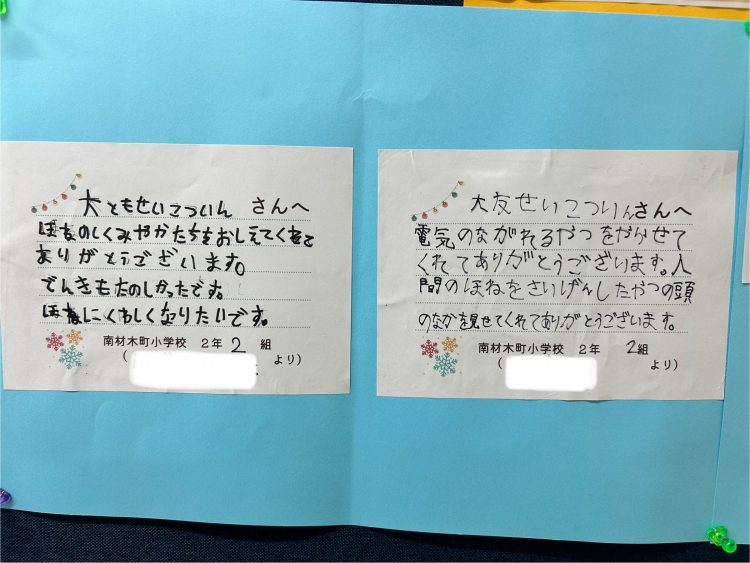 大ともせいこついん さんへ
ほねのしくみやかたちをおしえてくれて
ありがとうございます。
でんきもたのしかったです。
ほねにくわしくなりたいです。
南材木町小学校 2年 2 組
( より)
大友せいこついんさんへ
電気のながれるやつをやらせて
くれてありがとうございます。人
間のほねをさいげんしたやつの頭
のなかを見せてくれてありがとうございます。
南材木町小学校 2年 2組
( より)